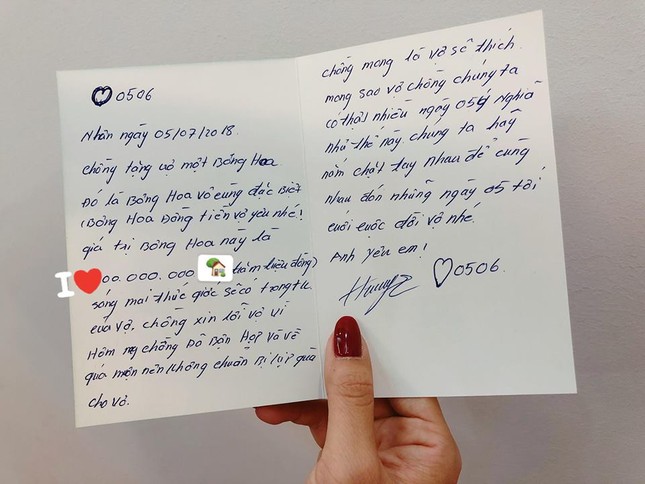 ♡0506
Nhân ngày 05/07/2018.
chồng tặng vợ một Bông Hoa.
Đó là Bông Hoa vô cùng đặc Biệt
(Bông Hoa Đồng tiền vợ yêu nhé!
giá trị Bông Hoa này là
I❤00.000.000 trăm triệu đồng)
sáng mai thức giấc sẽ có trong tk
của vợ. chồng xin lỗi vợ vì
Hôm ng chồng Đã Bận Họp và về
quá muộn nên không chuẩn Bị kịp quà
cho vợ.
chồng mong là vợ sẽ thích
mong sao vợ chồng chúng ta
có thật nhiều ngày 05 ý Nghĩa
như thế này. chúng ta hãy
nắm chặt tay nhau để cùng
nhau đón những ngày 05 tới
cuối cuộc đời vợ nhé.
Anh yêu em!
♡0506.